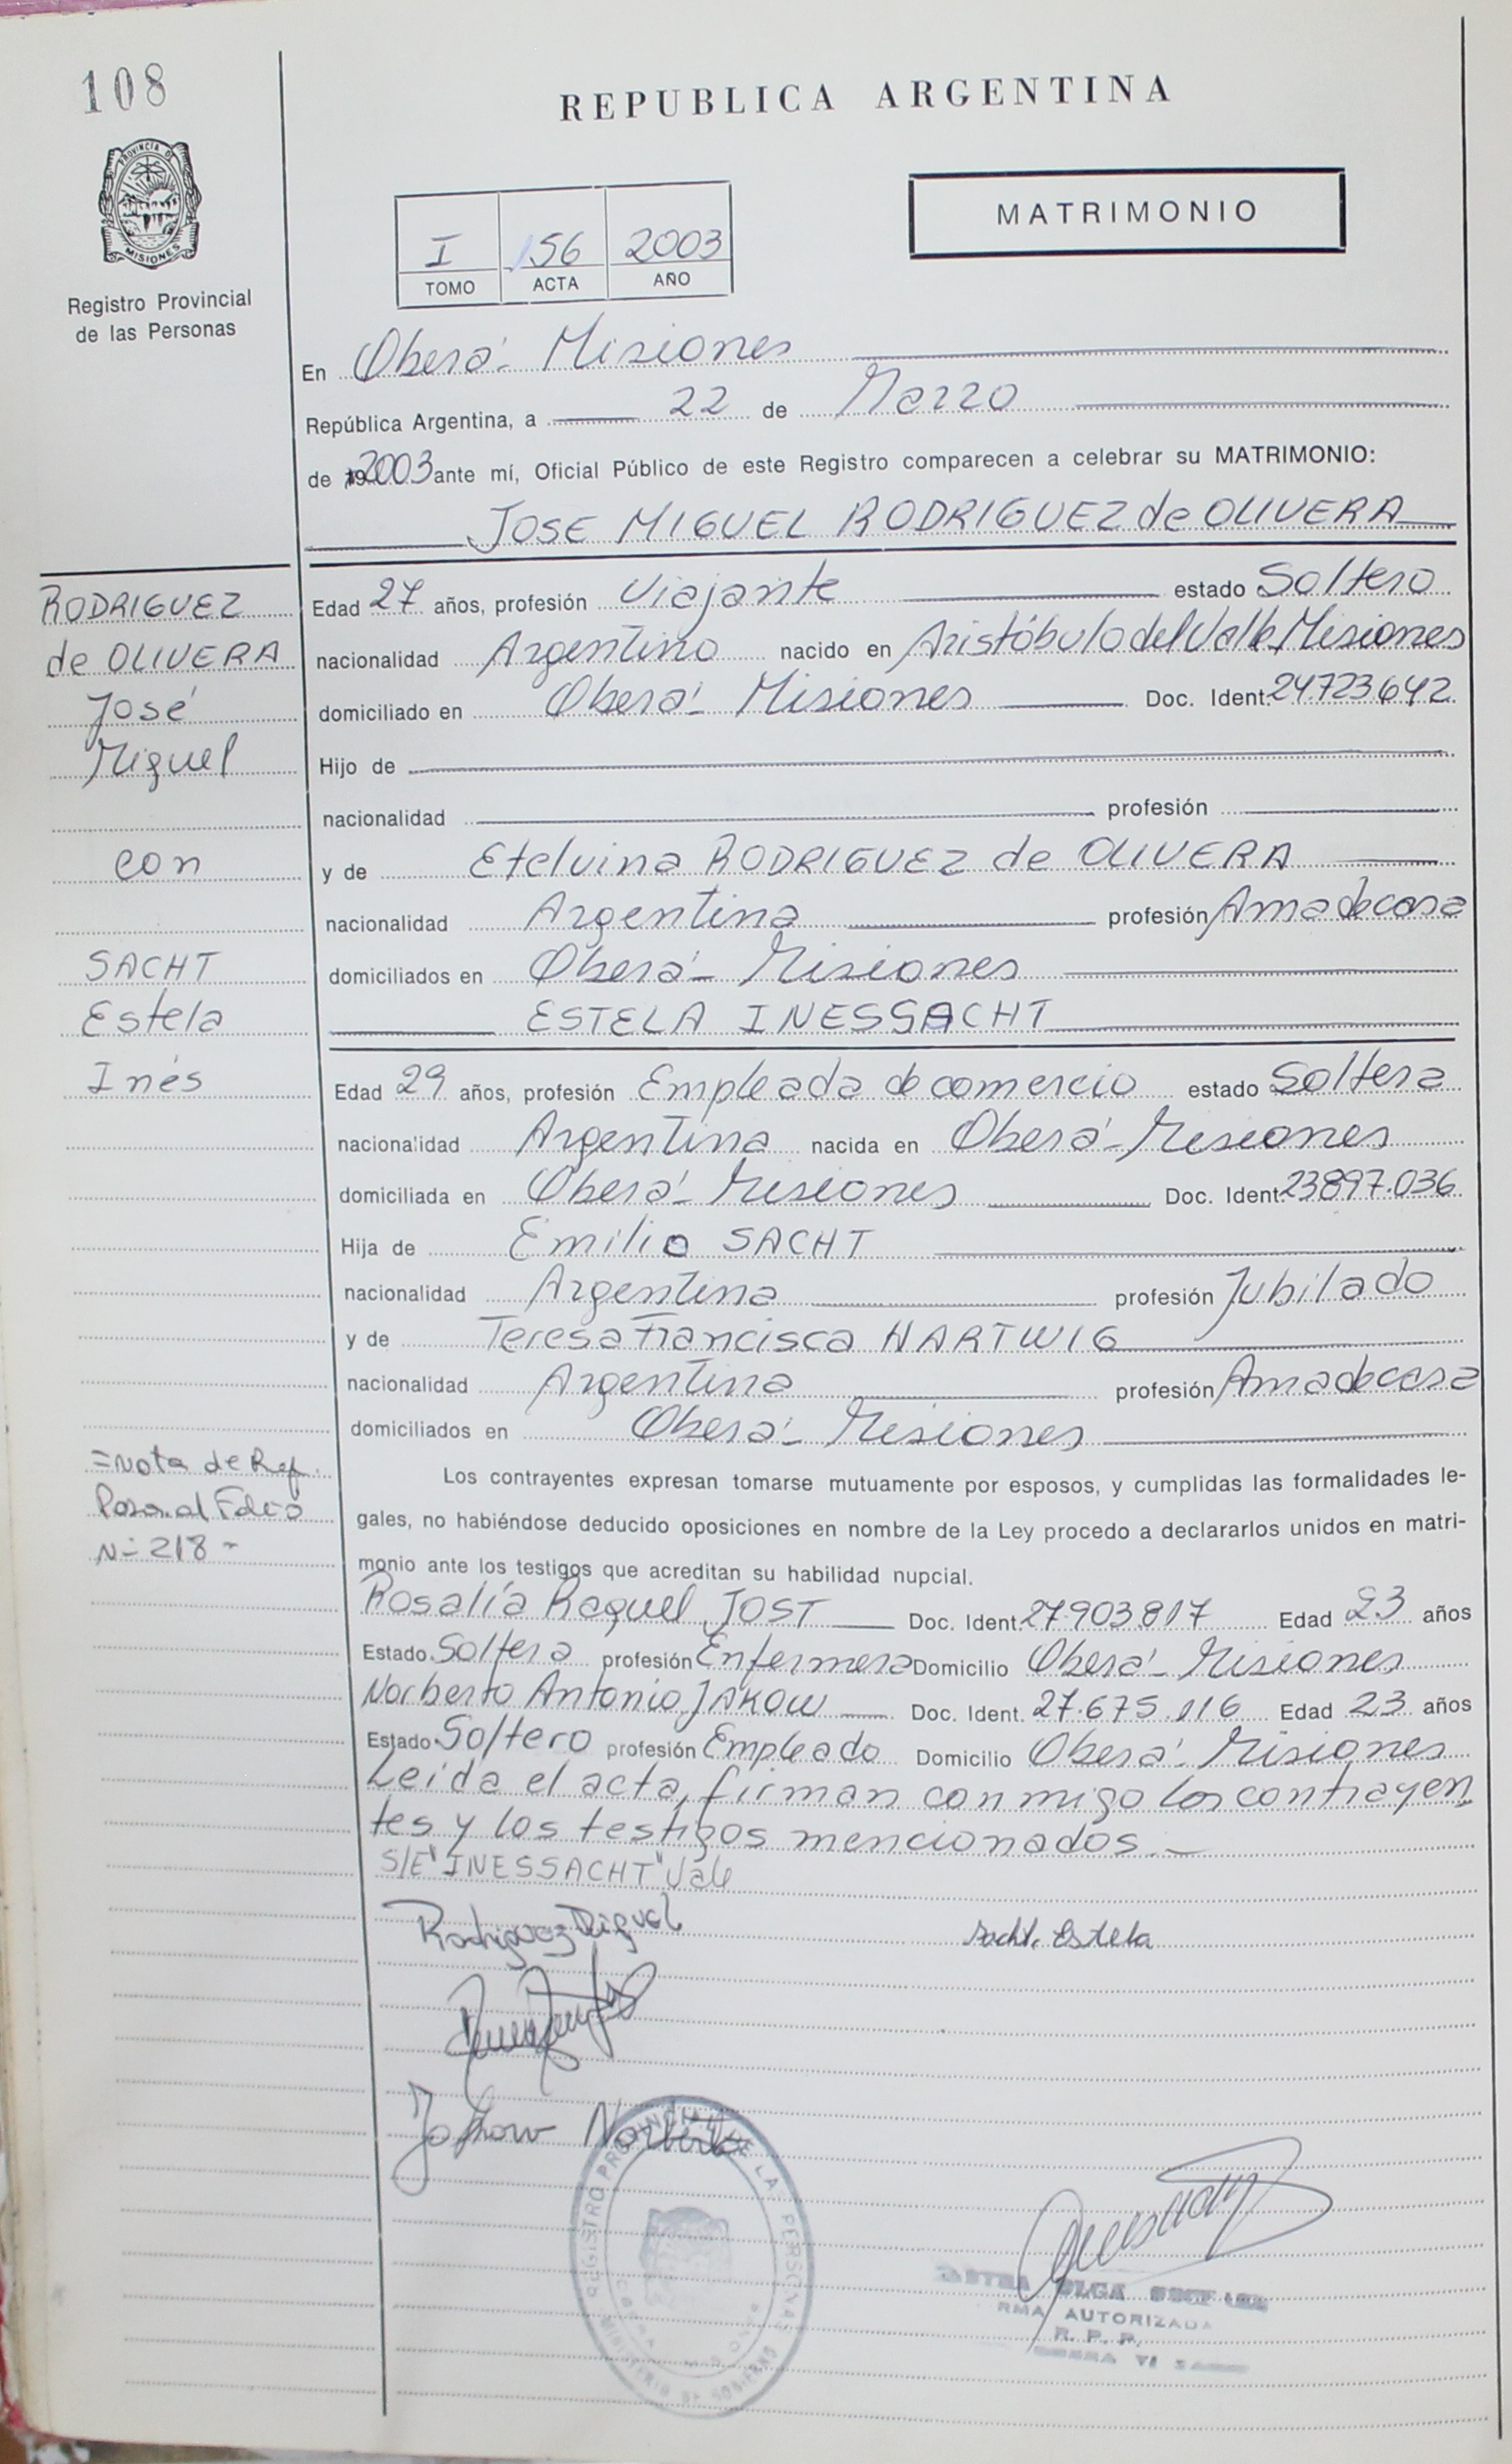 108
REPUBLICA ARGENTINA
PROVINCIA D
MISIONES
Registro Provincial
de las Personas
I 156 2003
TOMO ACTA AÑO
MATRIMONIO
En Oberá - Misiones
República Argentina, a 22 de Marzo
de 2003 ante mí, Oficial Público de este Registro comparecen a celebrar su MATRIMONIO:
JOSE MIGUEL RODRIGUEZ de OLIVERA
RODRIGUEZ
de OLIVERA
José
Miguel
con
SACHT
Estela
Inés
Edad 27 años, profesión Viajante estado Soltero
nacionalidad Argentino nacido en Aristóbulo del Valle, Misiones
domiciliado en Oberá - Misiones Doc. Ident. 24.723.642
Hijo de
nacionalidad profesión
y de Etelvina RODRIGUEZ de OLIVERA
nacionalidad Argentina profesión Ama de casa
domiciliados en Oberá - Misiones
ESTELA INES SACHT
Edad 29 años, profesión Empleada de comercio estado Soltera
nacionalidad Argentina nacida en Oberá - Misiones
domiciliada en Oberá - Misiones Doc. Ident. 23897.036
Hija de Emilio SACHT
nacionalidad Argentina profesión Jubilado
y de Teresa Francisca HARTWIG
nacionalidad Argentina profesión Ama de casa
domiciliados en Oberá - Misiones
=Nota de Ref.
al Folio
N- 218-
Los contrayentes expresan tomarse mutuamente por esposos, y cumplidas las formalidades le-
gales, no habiéndose deducido oposiciones en nombre de la Ley procedo a declararlos unidos en matri-
monio ante los testigos que acreditan su habilidad nupcial.
Rosalía Raquel JOST Doc. Ident. 27.903.817 Edad 23 años
Estado Soltera profesión Enfermera Domicilio Oberá - Misiones
Norberto Antonio JAKOW Doc. Ident. 27.675.116 Edad 23 años
Estado Soltero profesión Empleado Domicilio Oberá - Misiones
Leída el acta, firman conmigo los contrayen
tes y los testigos mencionados.-
S/E "INESSACHT" Vale
Rodriguez Miguel
Sacht. Estela
Jakow Norberto
REGISTRO PROVINCIAL DE LA PERSONAS
MINISTERIO DE GOBIERNO
OLGA
RMA AUTORIZADA
R. P. P.